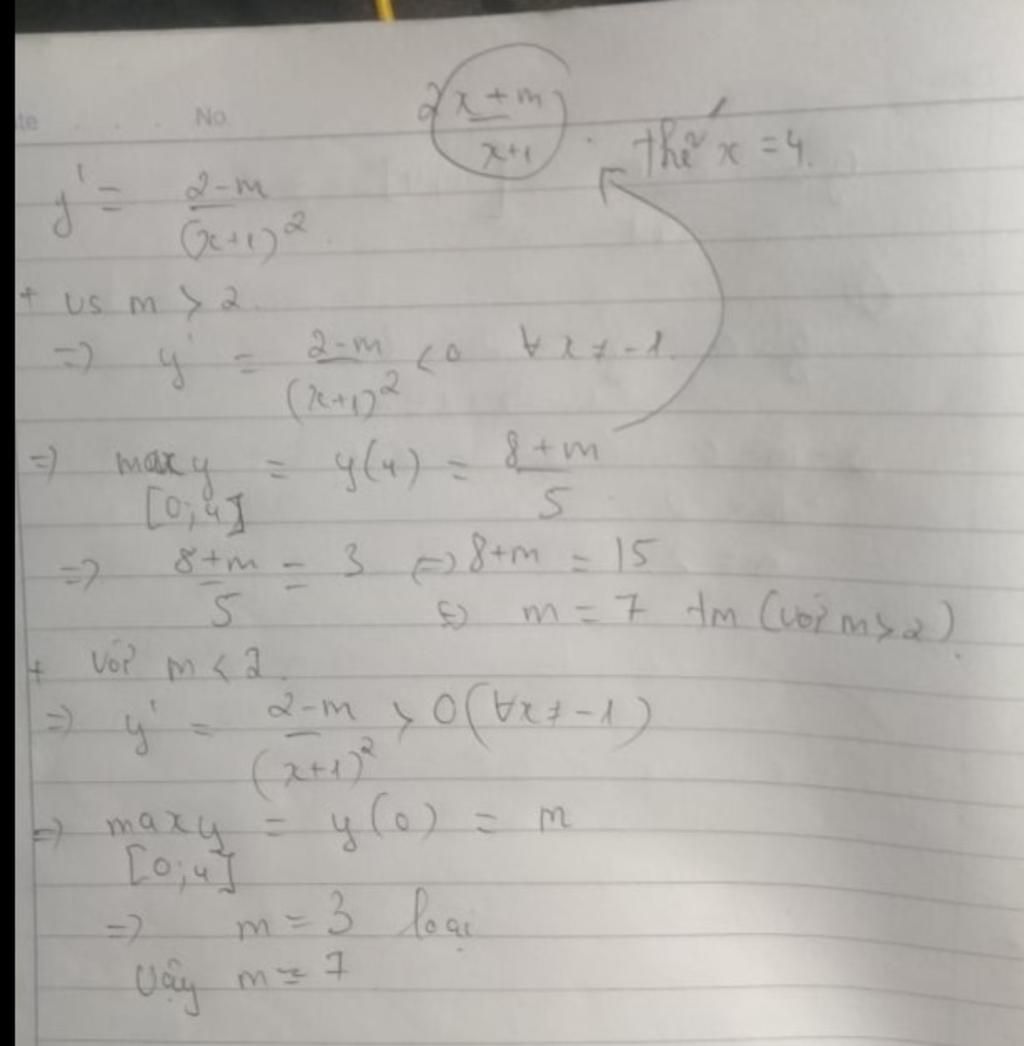 No
2x+m / x+1 . thế x = 4.
y' = 2-m / (x+1)²
+ vs m > 2.
=> y' = 2-m / (x+1)² < 0 ∀x ≠ -1.
=> max y [0;4] = y(4) = 8+m / 5
=> 8+m / 5 = 3 <=> 8+m = 15
<=> m = 7 tm (với m>2).
+ Với m < 2.
=> y' = 2-m / (x+1)² > 0 (∀x ≠ -1)
=> max y [0;4] = y(0) = m
=> m = 3 loại
Vậy m = 7